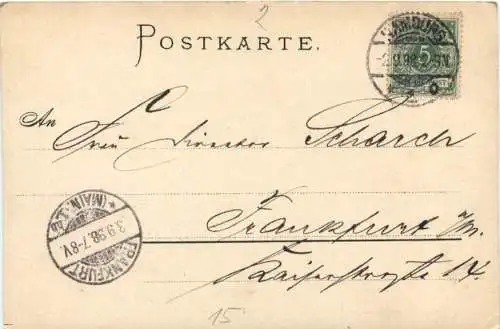 2
POSTKARTE.
HAMBURG
2.9.98.
5
An
Frau Director Scharch
Frankfurt a/M.
Kaiserstraße 14.
FRANKFURT
3.9.98.7-8V.
* (MAIN)
15